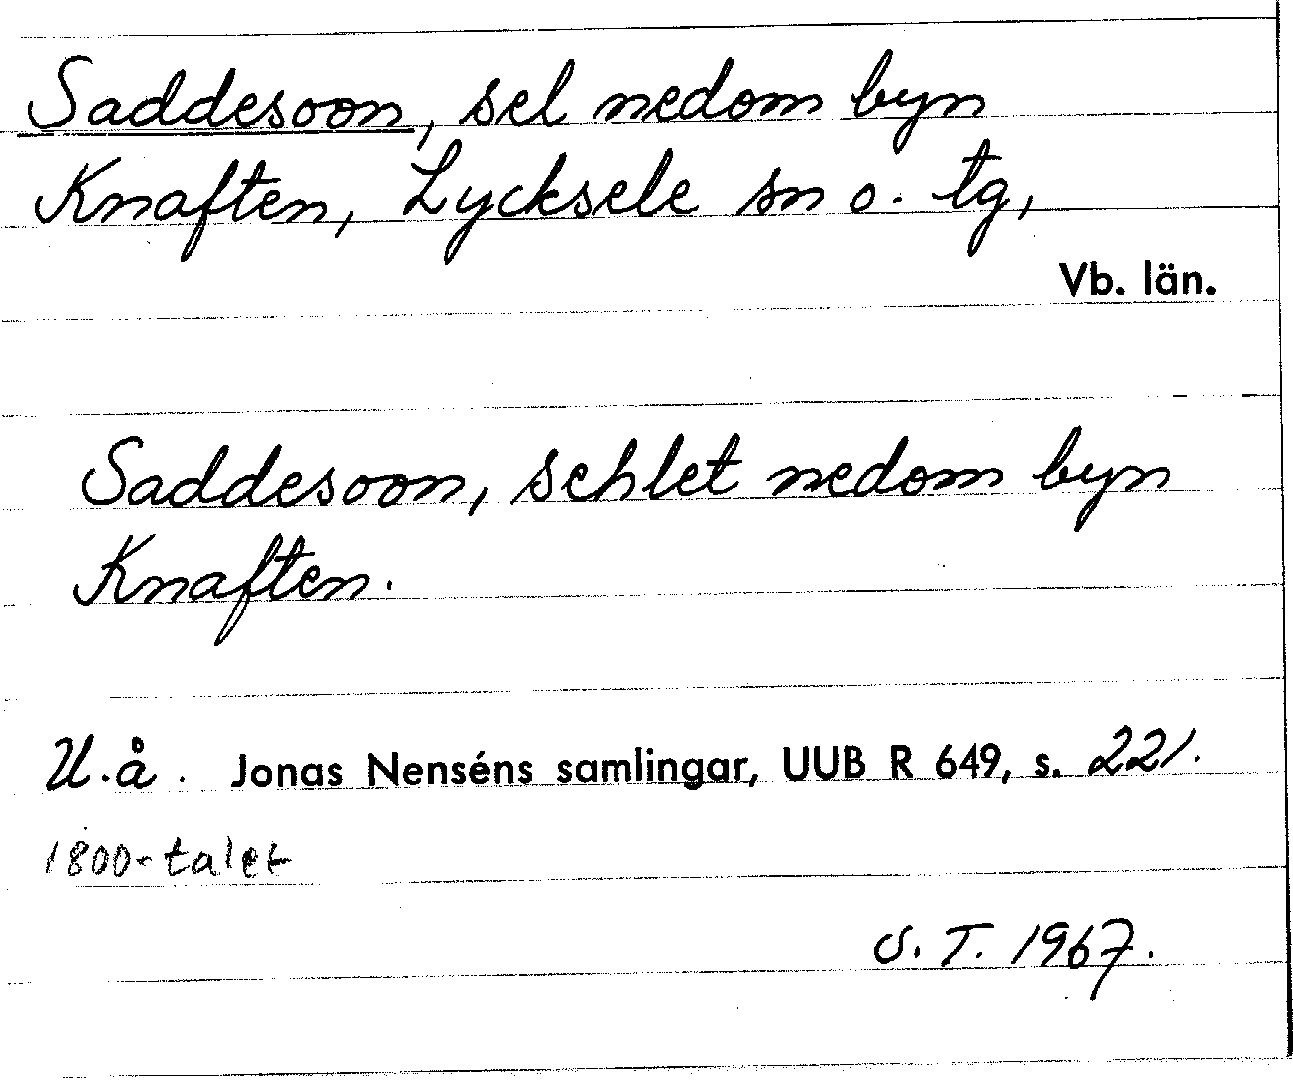 Saddesoon, sel nedom byn
Knaften, Lycksele sn o. tg,
Vb. län.
Saddesoon, sehlet nedom byn
Knaften.
U.å. Jonas Nenséns samlingar, UUB R 649, s. 221.
1800-talet
S. T. 1967.